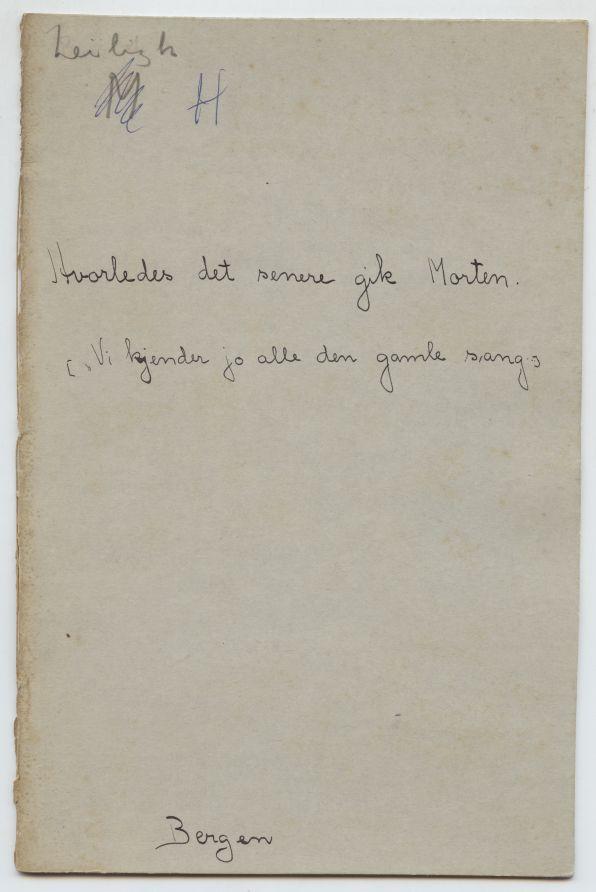 H
Hvorledes det senere gik Morten.
[ „Vi kjender jo alle den gamle sang]
Bergen